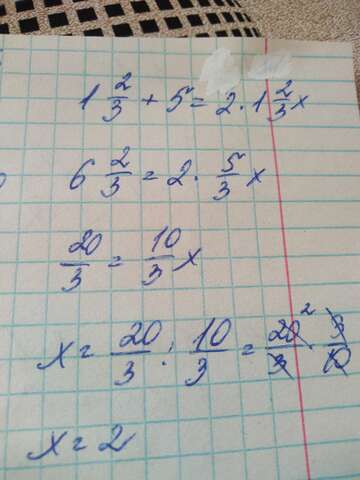 1 2/3 + 5 = 2 · 1 2/3 x
6 2/3 = 2 · 5/3 x
20/3 = 10/3 x
x = 20/3 : 10/3 = 20/3 2 3/10
x = 2